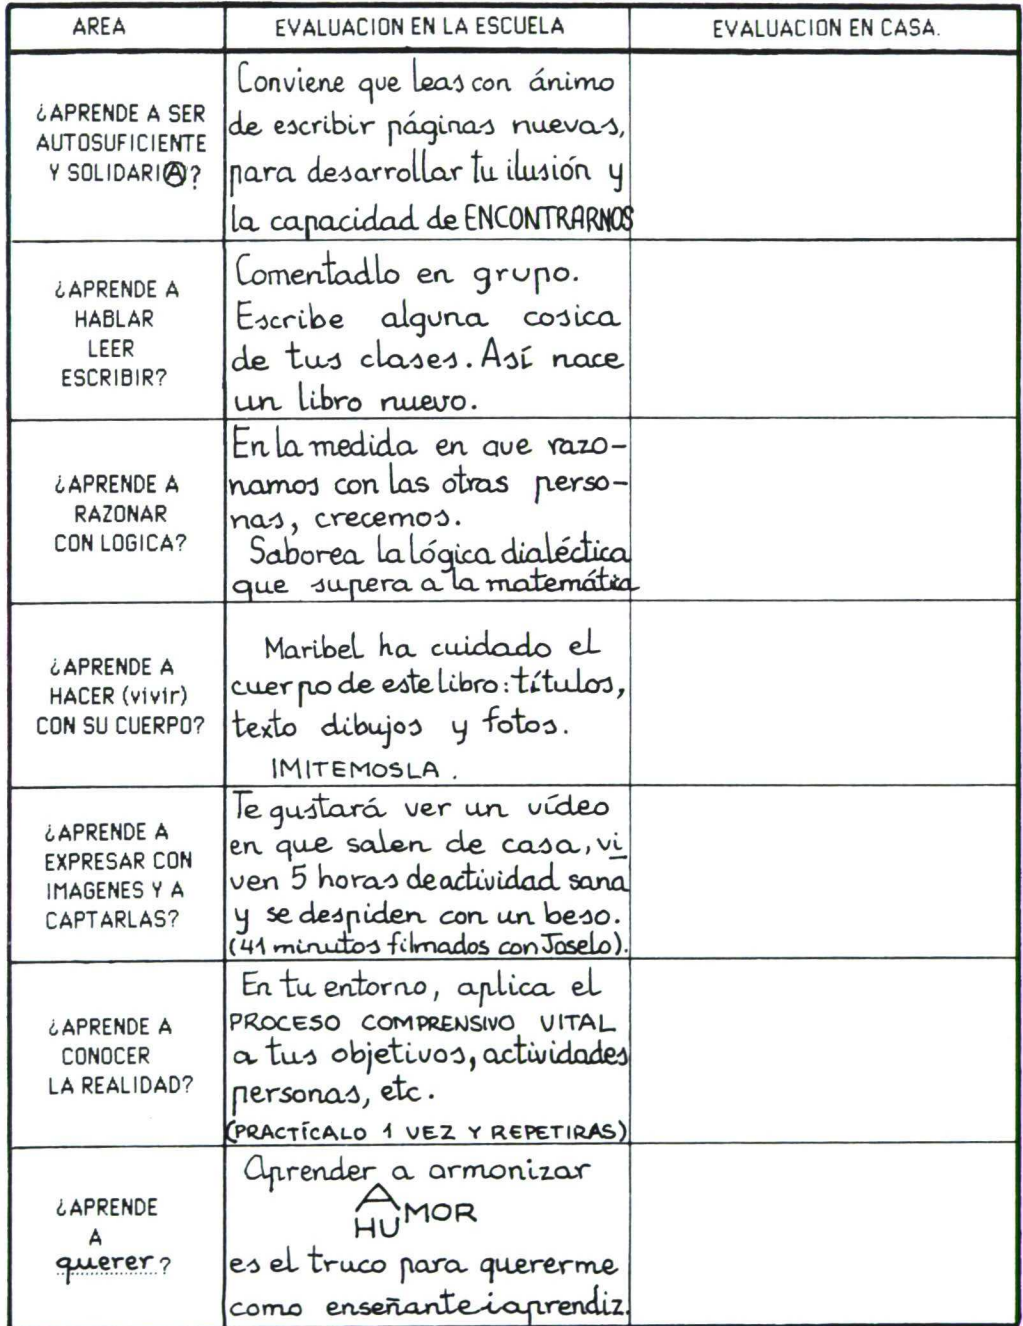 AREA
EVALUACION EN LA ESCUELA
EVALUACION EN CASA.
¿APRENDE A SER
AUTOSUFICIENTE
Y SOLIDARIA?
Conviene que leas con ánimo
de escribir páginas nuevas,
para desarrollar tu ilusión y
la capacidad de ENCONTRARNOS
¿APRENDE A
HABLAR
LEER
ESCRIBIR?
Comentadlo en grupo.
Escribe alguna cosica
de tus clases. Así nace
un libro nuevo.
¿APRENDE A
RAZONAR
CON LOGICA?
En la medida en que razo-
namos con las otras perso-
nas, crecemos.
Saborea la lógica dialéctica
que supera a la matemática
¿APRENDE A
HACER (vivir)
CON SU CUERPO?
Maribel ha cuidado el
cuerpo de este libro: títulos,
texto dibujos y fotos.
IMITEMOSLA.
¿APRENDE A
EXPRESAR CON
IMAGENES Y A
CAPTARLAS?
Te gustará ver un vídeo
en que salen de casa, vi
ven 5 horas de actividad sana
y se despiden con un beso.
(41 minutos filmados con Joselo).
¿APRENDE A
CONOCER
LA REALIDAD?
En tu entorno, aplica el
PROCESO COMPRENSIVO VITAL
a tus objetivos, actividades
personas, etc.
(PRACTÍCALO 1 VEZ Y REPETIRAS)
¿APRENDE
A
querer?
Aprender a armonizar
A
HUMOR
es el truco para quererme
como enseñante i aprendiz.